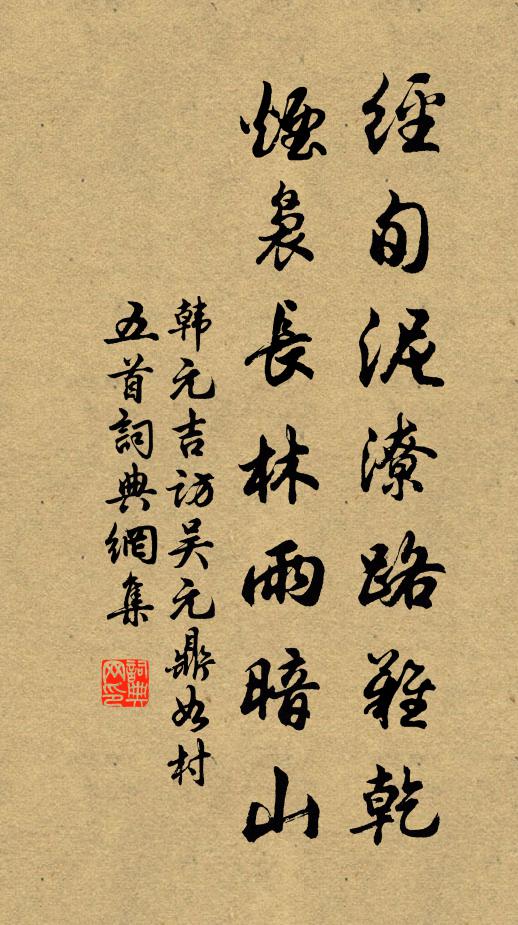 經旬泥潦路難乾
煙裊長林雨暗山
韩元吉访吴元鼎如村
五首詞典網集
詞典
网印